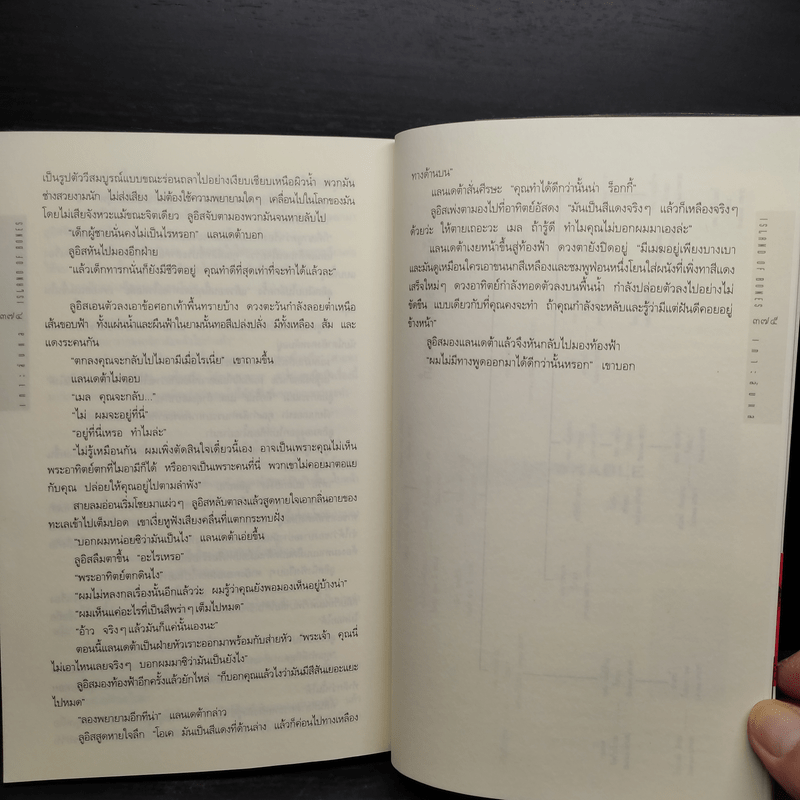 เป็นรูปตัววีสมบูรณ์แบบขณะร่อนถลาไปอย่างเงียบเชียบเหนือผิวน้ำ พวกมัน
ช่างสวยงามนัก ไม่ส่งเสียง ไม่ต้องใช้ความพยายามใดๆ เคลื่อนไปในโลกของมัน
โดยไม่เสียจังหวะแม้ขณะจิตเดียว ลูอิสจับตามองพวกมันจนหายลับไป
“เด็กผู้ชายนั่นคงไม่เป็นไรหรอก” แลนเดต้าบอก
ลูอิสหันไปมองอีกฝ่าย
“แล้วเด็กทารกนั่นก็ยังมีชีวิตอยู่ คุณทำดีที่สุดเท่าที่จะทำได้แล้วละ”
ลูอิสเอนตัวลงเอาข้อศอกเท้าพื้นทรายบ้าง ดวงตะวันกำลังลอยต่ำเหนือ
เส้นขอบฟ้า ทั้งแผ่นน้ำและผืนฟ้าในยามนั้นทอสีเปล่งปลั่ง มีทั้งเหลือง ส้ม และ
แดงระคนกัน
“ตกลงคุณจะกลับไปไมอามีเมื่อไรเนี่ย” เขาถามขึ้น
แลนเดต้าไม่ตอบ
“เมล คุณจะกลับ...”
“ไม่ ผมจะอยู่ที่นี่”
“อยู่ที่นี่เหรอ ทำไมล่ะ”
“ไม่รู้เหมือนกัน ผมเพิ่งตัดสินใจเดี๋ยวนี้เอง อาจเป็นเพราะคุณไม่เห็น
พระอาทิตย์ตกที่ไมอามีก็ได้ หรืออาจเป็นเพราะคนที่นี่ พวกเขาไม่คอยมาตอแย
กับคุณ ปล่อยให้คุณอยู่ไปตามลำพัง”
สายลมอ่อนเริ่มโชยมาแผ่วๆ ลูอิสหลับตาลงแล้วสูดหายใจเอากลิ่นอายของ
ทะเลเข้าไปเต็มปอด เขาเงี่ยหูฟังเสียงคลื่นที่แตกกระทบฝั่ง
“บอกผมหน่อยซิว่ามันเป็นไง” แลนเดต้าเอ่ยขึ้น
ลูอิสลืมตาขึ้น “อะไรเหรอ”
“พระอาทิตย์ตกดินไง”
“ผมไม่หลงกลเรื่องนั้นอีกแล้วว่ะ ผมรู้ว่าคุณยังพอมองเห็นอยู่บ้างน่า”
“ผมเห็นแค่อะไรที่เป็นสีพร่าๆ เต็มไปหมด”
“อ้าว จริงๆ แล้วมันก็แค่นั้นเองนะ”
ตอนนี้แลนเดต้าเป็นฝ่ายหัวเราะออกมาพร้อมกับส่ายหัว “พระเจ้า คุณนี่
ไม่เอาไหนเลยจริงๆ บอกผมมาซิว่ามันเป็นยังไง”
ลูอิสมองท้องฟ้าอีกครั้งแล้วยักไหล่ “ก็บอกคุณแล้วไงว่ามันมีสีสันเยอะแยะ
ไปหมด”
“ลองพยายามอีกทีน่า” แลนเดต้ากล่าว
ลูอิสสูดหายใจลึก “โอเค มันเป็นสีแดงที่ด้านล่าง แล้วก็ค่อนไปทางเหลือง
ISLAND OF BONES
๓๗๔
ทางด้านบน”
แลนเดต้าสั่นศีรษะ “คุณทำได้ดีกว่านั้นน่า ร็อกกี้”
ลูอิสเพ่งตามองไปที่อาทิตย์อัสดง “มันเป็นสีแดงจริงๆ แล้วก็เหลืองจริงๆ
ด้วยว่ะ ให้ตายเถอะวะ เมล ถ้ารู้ดี ทำไมคุณไม่บอกผมมาเองล่ะ”
แลนเดต้าเงยหน้าขึ้นสู่ท้องฟ้า ดวงตายังปิดอยู่ “มีเมฆอยู่เพียงบางเบา
และมันดูเหมือนใครเอาขนนกสีเหลืองและชมพูฟ่อนหนึ่งโยนใส่ผนังที่เพิ่งทาสีแดง
เสร็จใหม่ๆ ดวงอาทิตย์กำลังทอดตัวลงบนพื้นน้ำ กำลังปล่อยตัวลงไปอย่างไม่
ขัดขืน แบบเดียวกับที่คุณคงจะทำ ถ้าคุณกำลังจะหลับและรู้ว่ามีแต่ฝันดีคอยอยู่
ข้างหน้า”
ลูอิสมองแลนเดต้าแล้วจึงหันกลับไปมองท้องฟ้า
“ผมไม่มีทางพูดออกมาได้ดีกว่านั้นหรอก” เขาบอก
ISLAND OF BONES
๓๗๕